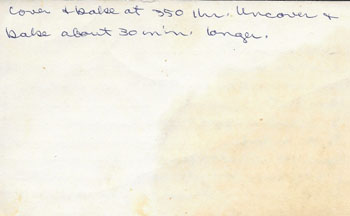 Cover & bake at 350 1hr. Uncover &
bake about 30 min. longer.